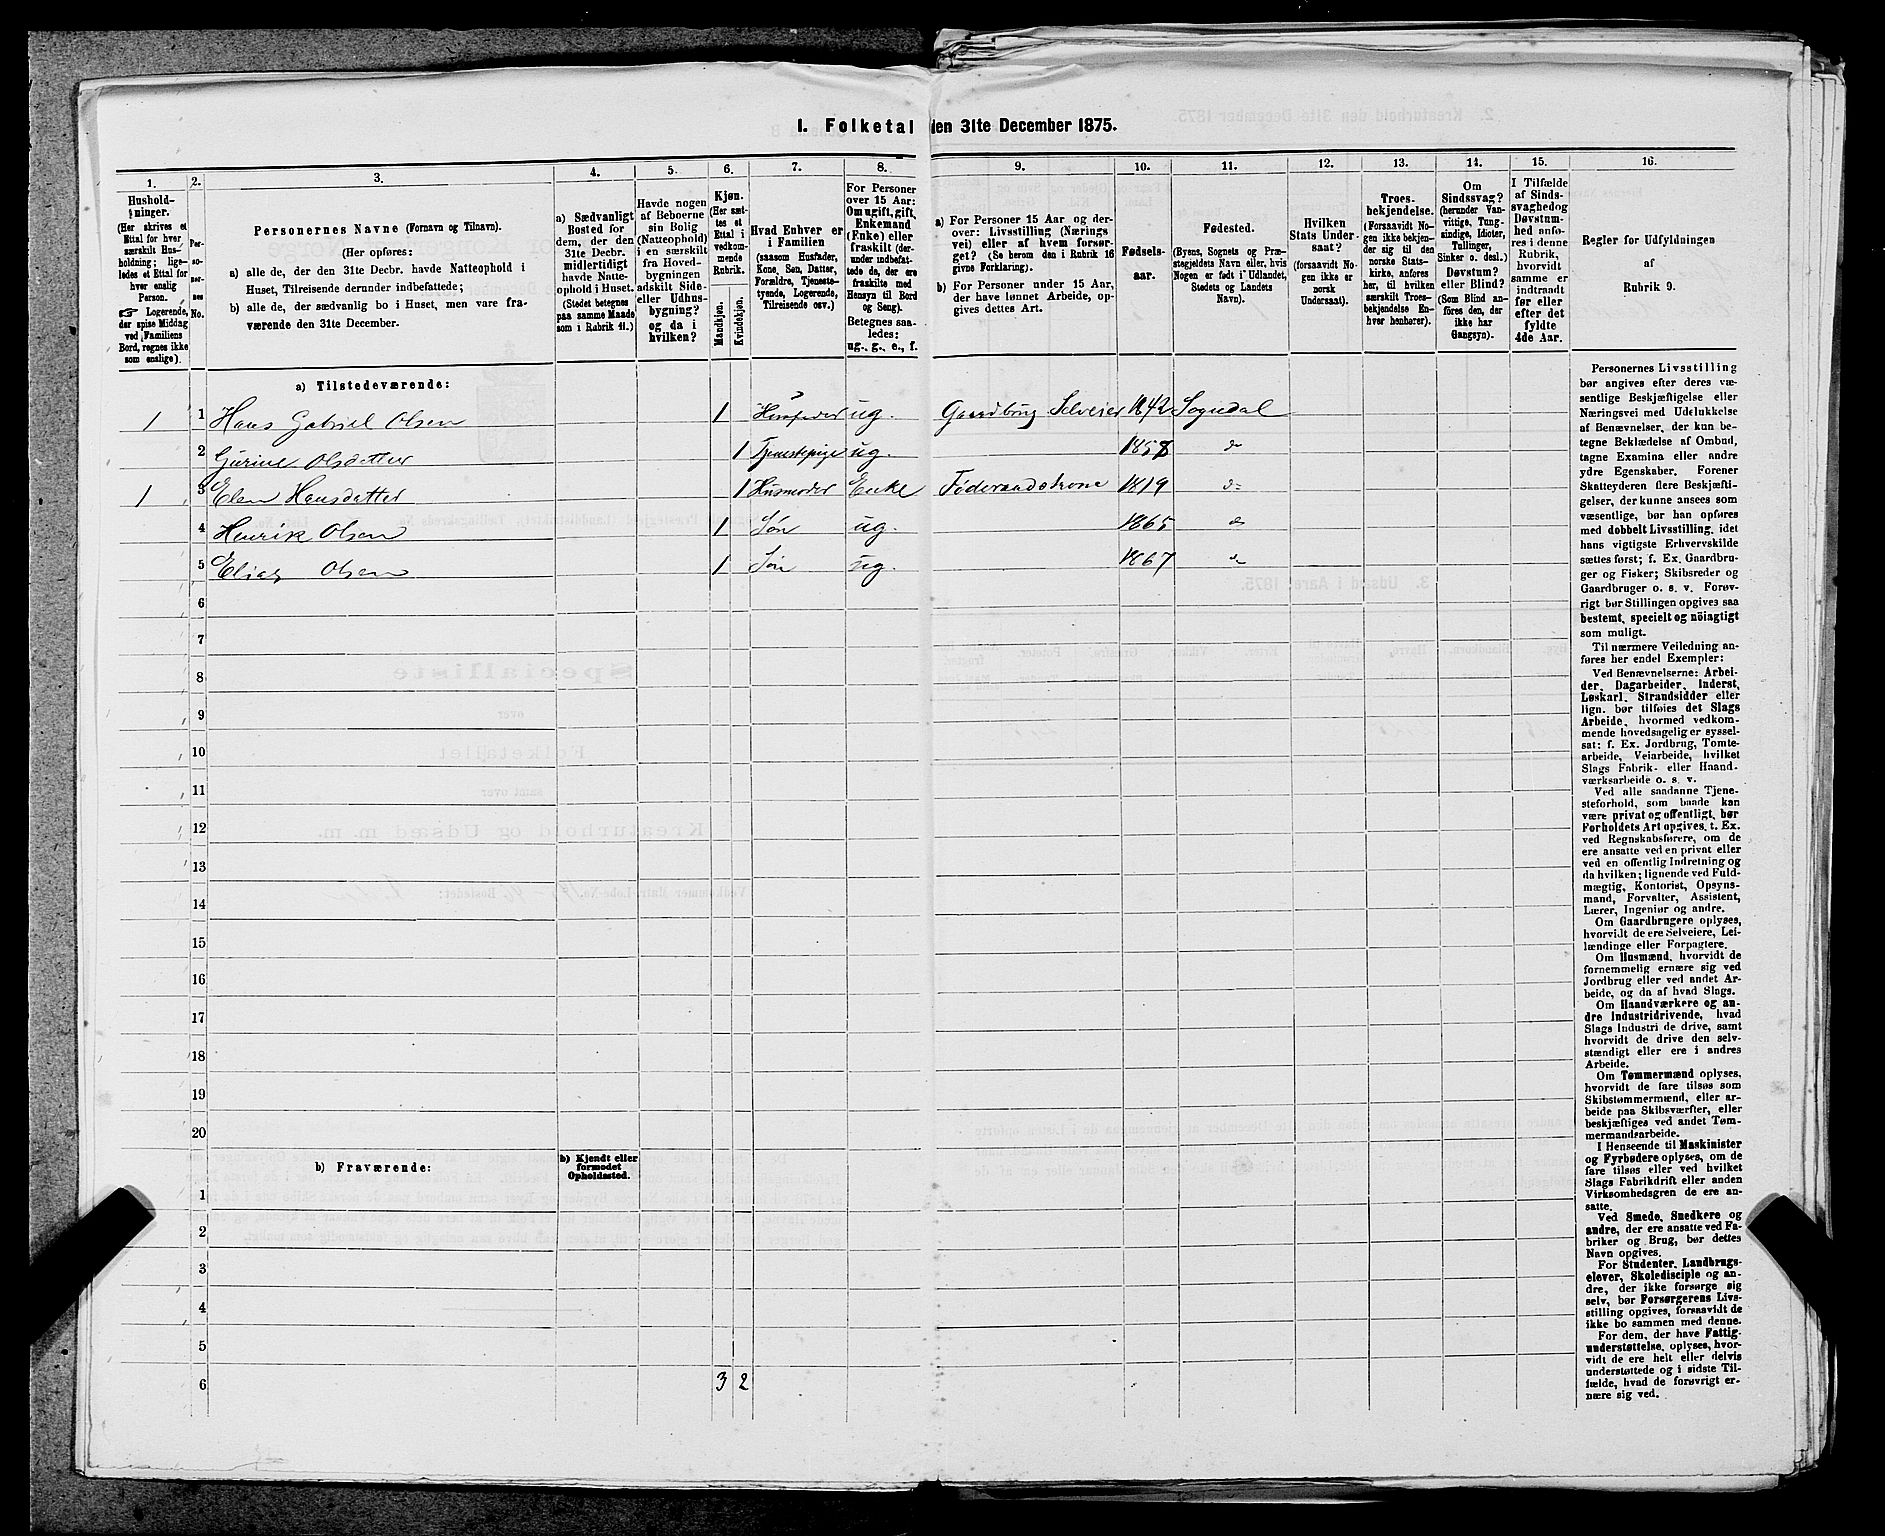 I. Folketal den 31te December 1875.
1. 2. 3. 4. 5. 6. 7. 8. 9. 10. 11. 12. 13. 14. 15. 16.
Hushold-
ninger.
(Her skrives et
Ettal for hver
særskilt Hus-
holdning; lige-
ledes et Ettal for
hver enslig
Person.
☞ Logerende,
der spise Middag
ved Familiens
Bord, regnes ikke
som enslige).
Per-
so-
ner-
nes
No.
Personernes Navne (Fornavn og Tilnavn).
(Her opføres:
a) alle de, der den 31te Decbr. havde Natteophold i
Huset, Tilreisende derunder indbefattede;
b) alle de, der sædvanlig bo i Huset, men vare fra-
værende den 31te December.
a) Sædvanligt
Bosted for
dem, der den
31te Decbr.
midlertidigt
havde Natte-
ophold i Huset.
(Stedet betegnes
paa samme Maade
som i Rubrik 11.)
Havde nogen
af Beboerne
sin Bolig
(Natteophold)
i en særskilt
fra Hoved-
bygningen
adskilt Side-
eller Udhus-
bygning?
og da i
hvilken?
Kjøn.
(Her sæt-
tes et
Ettal i
vedkom-
mende
Rubrik.
Mandkjøn.
Kvindekjøn.
Hvad Enhver er
i Familien
(saasom Husfader,
Kone, Søn, Datter,
Forældre, Tjeneste-
tyende, Logerende,
Tilreisende osv.)
For Personer
over 15 Aar:
Om ugift, gift,
Enkemand
(Enke) eller
fraskilt (der-
under indbefat-
tede de, der ere
fraskilte med
Hensyn til Bord
og Seng).
Betegnes saa-
ledes:
ug., g., e., f.
a) For Personer 15 Aar og der-
over: Livsstilling (Nærings
vei) eller af hvem forsør-
get? (Se herom den i Rubrik 16
givne Forklaring).
b) For Personer under 15 Aar,
der have lønnet Arbeide, op-
gives dettes Art.
Fødsels-
aar.
Fødested.
(Byens, Sognets og Præ-
stegjeldets Navn eller, hvis
Nogen er født i Udlandet,
Stedets og Landets
Navn).
Hvilken
Stats Under
saat?
(forsaavidt No-
gen ikke er
norsk
Undersaat).
Troes-
bekjendelse.
(Forsaavidt No-
gen ikke bekjen-
der sig til den
norske Stats-
kirke, anføres
her, til hvilken
særskilt Troes-
bekjendelse En-
hver henhører).
Om
Sindssvag?
(herunder Van-
vittige, Tung-
sindige, Idioter,
Tullinger,
Sinker o. desl.)
Døvstum?
eller Blind?
(Som Blind an-
føres den, der
ikke har
Gangsyn).
I Tilfælde
af Sinds-
svaghed og
Døvstum-
hed anfø-
res i denne
Rubrik,
hvorvidt
samme er
indtraadt
før eller
efter det
fyldte
4de Aar.
Regler for Udfyldningen
af
Rubrik 9.
a) Tilstedeværende:
1 1 Hans Gabriel Olsen 1 Husfader ug. Gaardbrug Selveier 1842 Sogndal
2 Gurine Olsdatter 1 Tjenestepige ug. do
1 3 Elen Hansdatter 1 Husmoder Enke Føderaadskone 1819 do
4 Henrik Olsen 1 Søn ug. 1865 do
5 Elias Olsen 1 Søn ug. 1867 do
6
7
8
9
10
11
12
13
14
15
16
17
18
19
20
b) Fraværende:
b) Kjendt eller
formodet
Opholdssted.
1
2
3
4
5
6 3 2
Personernes Livsstilling
bør angives efter deres væ-
sentlige Beskjæftigelse eller
Næringsvei med Udelukkelse
af Benævnelser, der kun be-
tegne Beklædelse af Ombud,
tagne Examina eller andre
ydre Egenskaber. Forener
Skatteyderen flere Beskjæfti-
gelser, der kunne ansees som
væsentlige, bør han opføres
med dobbelt Livsstilling, idet
hans vigtigste Erhvervskilde
sættes først; f. Ex. Gaardbru-
ger og Fisker; Skibsreder og
Gaardbruger o. s. v. Forøv-
rigt bør Stillingen opgives saa
bestemt, specielt og nöiagtigt
som muligt.
Til nærmere Veiledning an-
føres her endel Exempler:
Ved Benævnelserne: Arbei-
der, Dagarbeider, Inderst,
Løskarl, Strandsidder eller
lign. bør tilføies det Slags
Arbeide, hvormed vedkom-
mende hovedsagelig er syssel-
sat: f. Ex. Jordbrug, Tomte-
arbeide, Veiarbeide, hvilket
Slags Fabrik- eller Haand-
værksarbeide o. s. v.
Ved alle saadanne Tjene-
steforhold, som baade kan
være privat og offentligt, bør
Forholdets Art opgives, t. Ex.
ved Regnskabsførere, om de
ere ansatte ved en privat eller
ved en offentlig Indretning og
da hvilken; lignende ved Fuld-
mægtig, Kontorist, Opsyns-
mand, Forvalter, Assistent,
Lærer, Ingeniør og andre.
Om Gaardbrugere oplyses,
hvorvidt de ere Selveiere, Lei-
lændinge eller Forpagtere.
Om Husmænd, hvorvidt de
fornemmelig ernære sig ved
Jordbrug eller ved andet Ar-
beide, og da af hvad Slags.
Om Haandværkere og an-
dre Industridrivende, hvad
Slags Industri de drive, samt
hvorvidt de drive den selv-
stændigt eller ere i andres
Arbeide.
Om Tømmermænd oplyses,
hvorvidt de fare tilsøs som
Skibstømmermænd, eller ar-
beide paa Skibsværfter, eller
beskjæftiges ved andet Tøm-
mermandsarbeide.
I Henseende til Maskinister
og Fyrbødere oplyses, om de
fare tilsøs eller ved hvilket
Slags Fabrikdrift eller anden
Virksomhedsgren de ere an-
satte.
Ved Smede, Snedkere og
andre, der ere ansatte ved Fa-
briker og Brug, bør dettes
Navn opgives.
For Studenter, Landbrugs-
elever, Skoledisciple og an-
dre, der ikke forsørge sig
selv, bør Forsørgerens Livs-
stilling opgives, forsaavidt de
ikke bo sammen med denne.
For dem, der have Fattig-
understøttelse, oplyses, hvor-
vidt de ere helt eller delvis
understøttede og i sidste Til-
fælde, hvad de forøvrigt er-
nære sig ved.